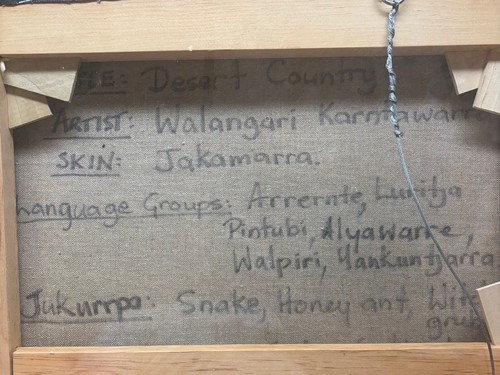 LE: Desert Country
ARTIST: Walangari Karnawarre
SKIN: Jakamarra.
Language Groups: Arrernte, Luritja
Pintubi, Alyawarre,
Walpiri, Yankuntjarra
Jukurrpa: Snake, Honey ant, Witch
grub